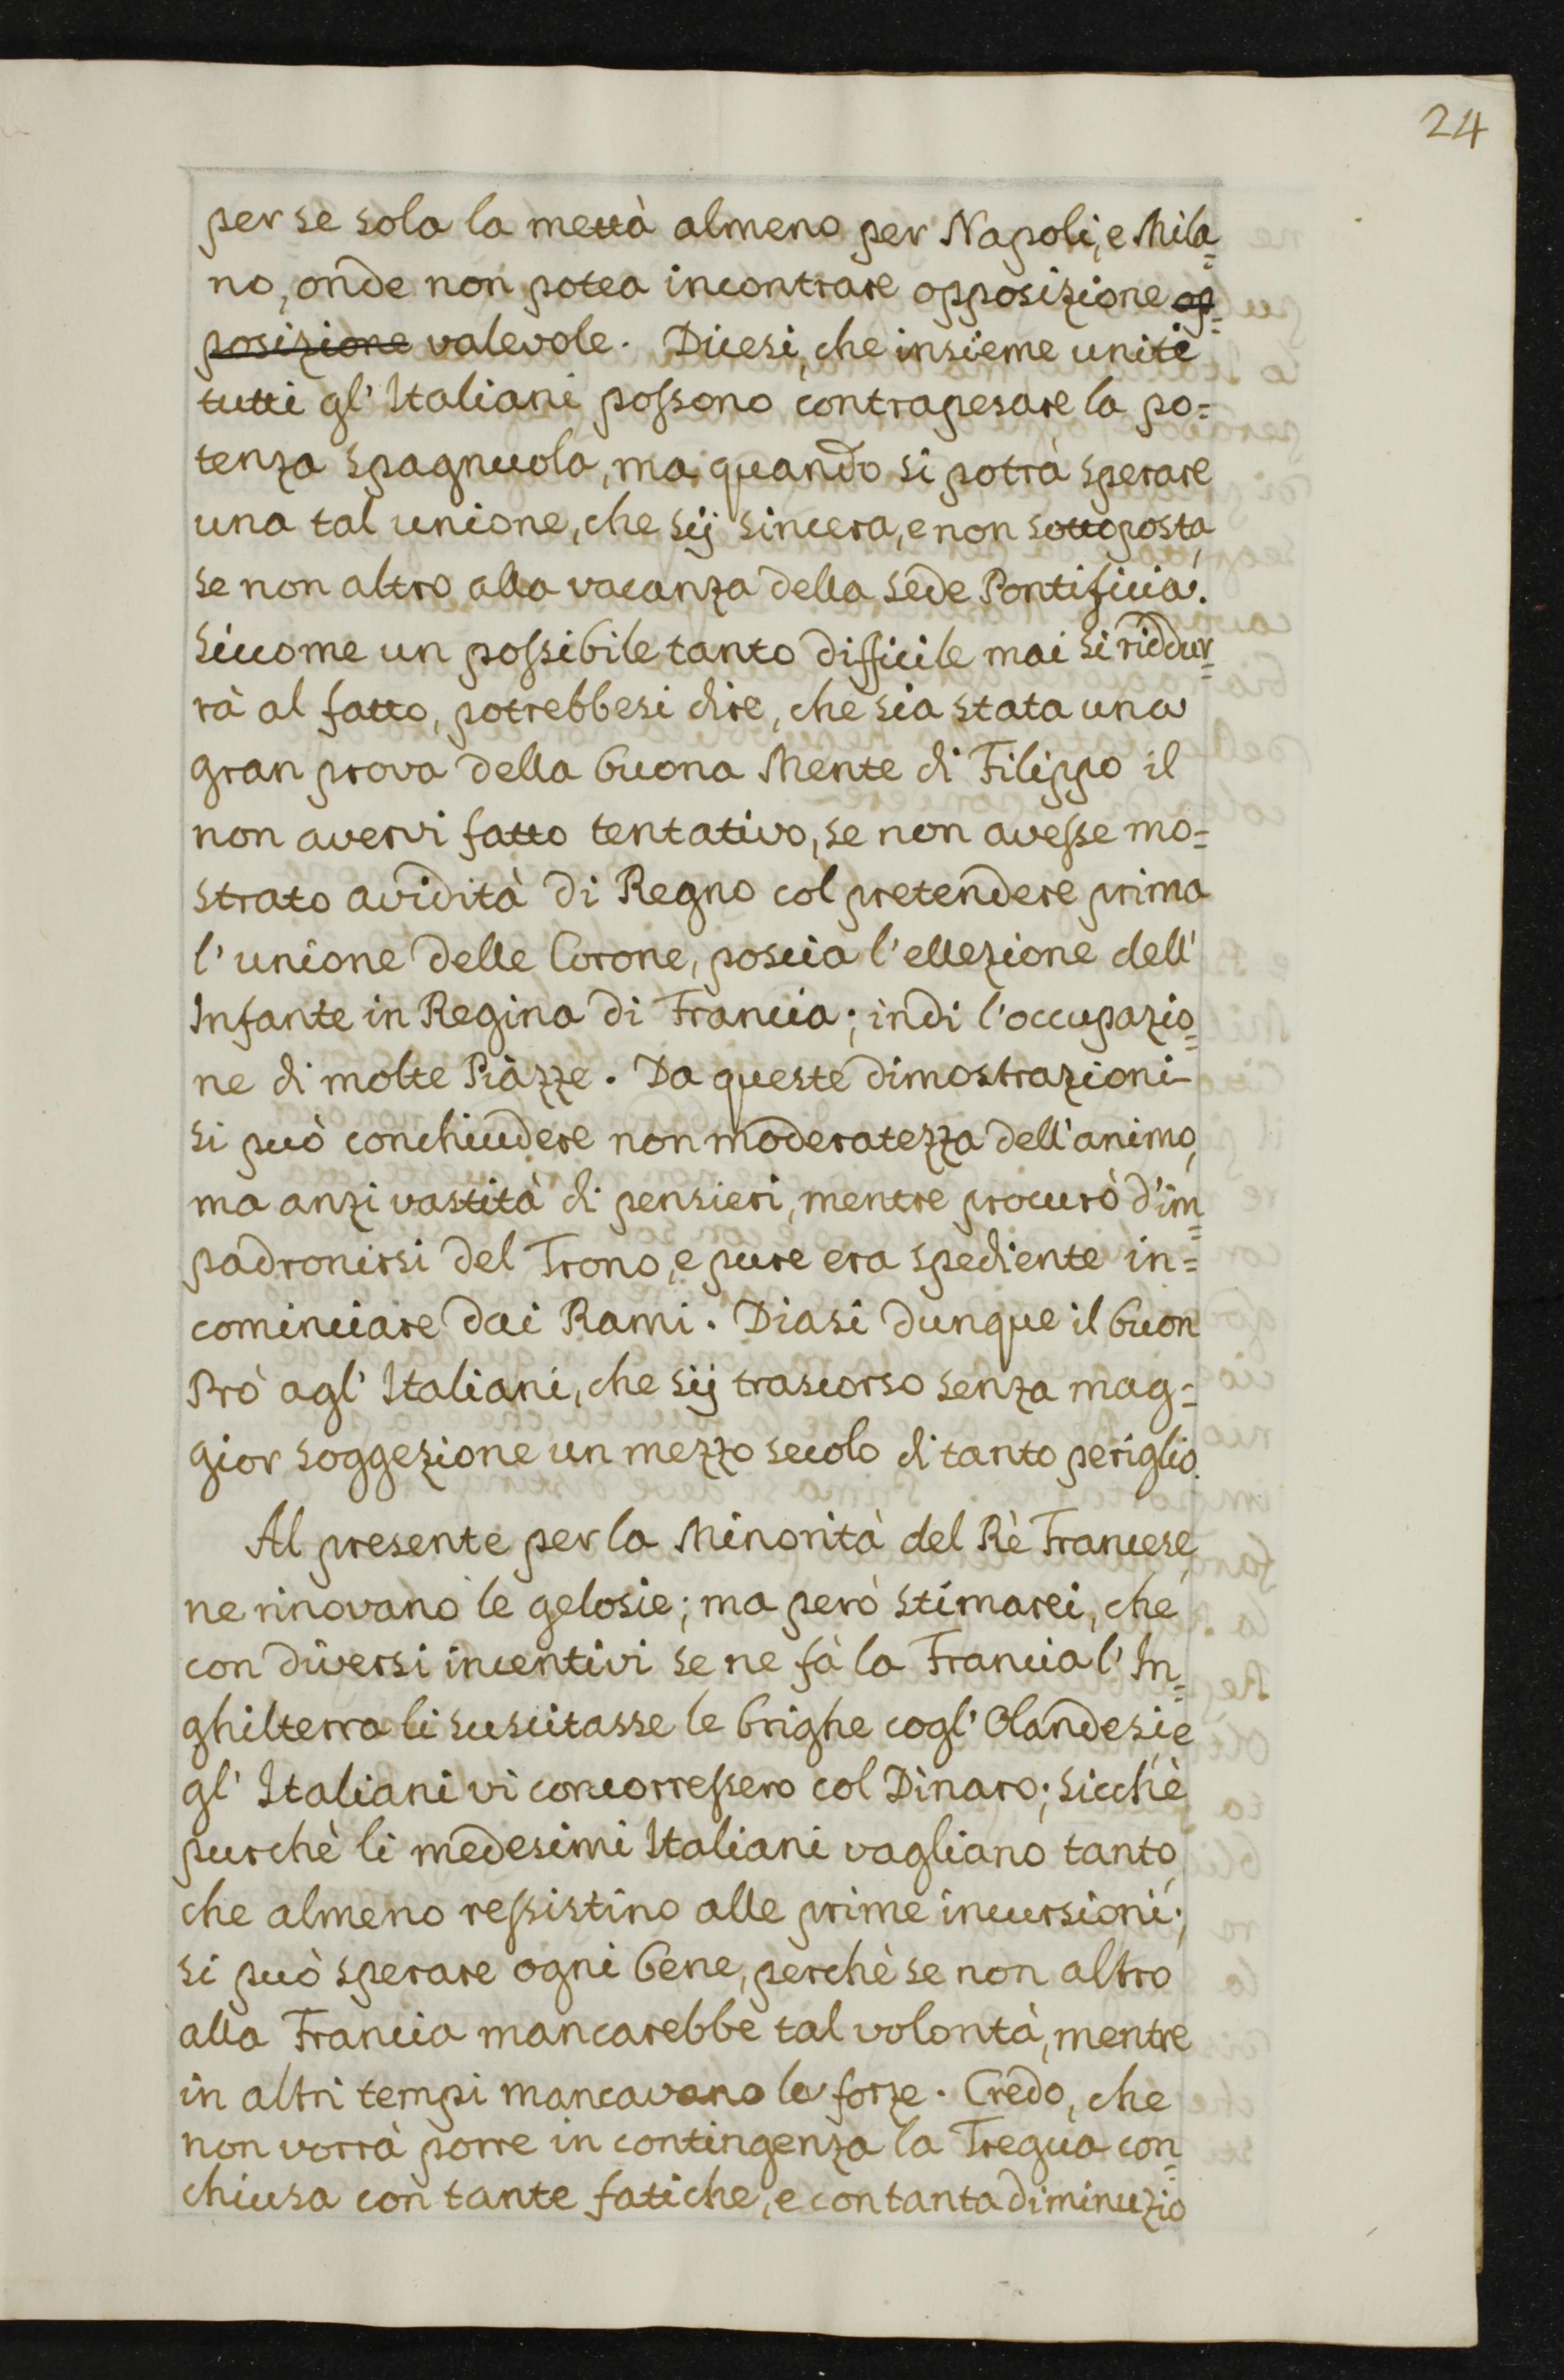 24
per se sola la mettà almeno per Napoli, e Mila=
no, onde non potea incontrare opposizione op=
posizione valevole. Dicesi, che insieme uniti
tutti gl' Italiani possono contrapesare la po=
tenza spagnuola, ma quando si potrà sperare
una tal unione, che sij sincera, e non sottoposta,
se non altro alla vacanza della sede Pontificia.
Siccome un possibile tanto difficile mai si riddur=
rà al fatto, potrebbesi dire, che sia stata una
gran prova della buona Mente di Filippo il
non avervi fatto tentativo, se non avesse mo=
strato avidità di Regno col pretendere prima
l' unione delle Corone, poscia l' ellezione dell'
Infante in Regina di Francia; indi l'occupazio=
ne di molte Piazze. Da queste dimostrazioni
si può conchiudere non moderatezza dell'animo,
ma anzi vastità di pensieri, mentre procurò d'im=
padronirsi del Trono, e pure era spediente in=
cominciare dai Rami. Diasi dunque il buon
Prò agl' Italiani, che sij trascorso senza mag=
gior soggezione un mezzo secolo di tanto periglio.
Al presente per la Minorità del Rè Francese
ne rinovano le gelosie; ma però stimarei, che
con diversi incentivi se ne fà la Francia l' In=
ghilterra li suscitasse le brighe cogl' Olandesi, e
gl' Italiani vi concorressero col Dinaro; sicchè
purchè li medesimi Italiani vagliano tanto,
che almeno ressistino alle prime incursioni;
si può sperare ogni bene, perchè se non altro
alla Francia mancarebbe tal volontà, mentre
in altri tempi mancavano le forze. Credo, che
non vorrà porre in contingenza la Tregua con=
chiusa con tante fatiche, e con tanta diminuzio